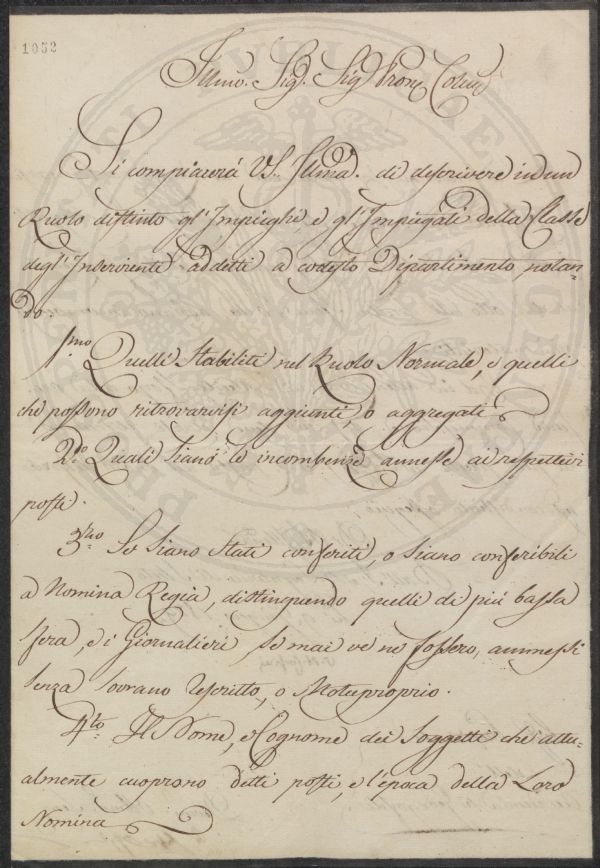 1052
Illmo. Sig. Sig. Prone Colmo
Si compiacerà VS. Illma. di descrivere in un
Ruolo distinto gl'Impieghi e gl'Impiegati della Classe
degl'Inservienti addetti a codesto Dipartimento, notan-
do.
Pmo. Quelli Stabiliti nel Ruolo Normale, e quelli
che possono ritrovarvisi aggiunti, o aggregati
2do. Quali siano le incombenze annesse ai respettivi
posti.
3zo. Se siano stati conferiti, o siano conferibili
a Nomina Regia, distinguendo quelli di più bassa
sfera, e i Giornalieri se mai ve ne fossero, ammessi
senza sovrano rescritto, o Motuproprio.
4to. Il Nome, e Cognome dei soggetti che attu-
almente cuoprono detti posti, e l'epoca della Loro
Nomina